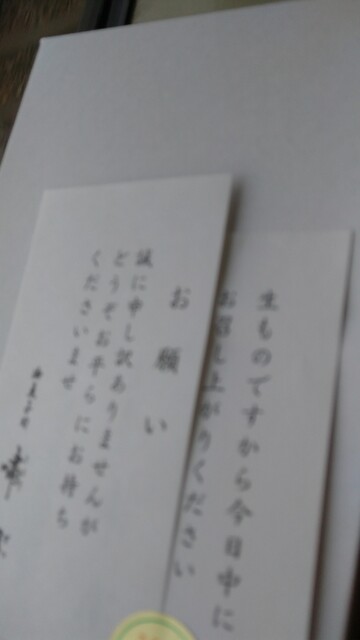 生ものですから今日中に
お召し上がりください
お願い
誠に申し訳ありませんが
どうぞお平らにお持ち
くださいませ